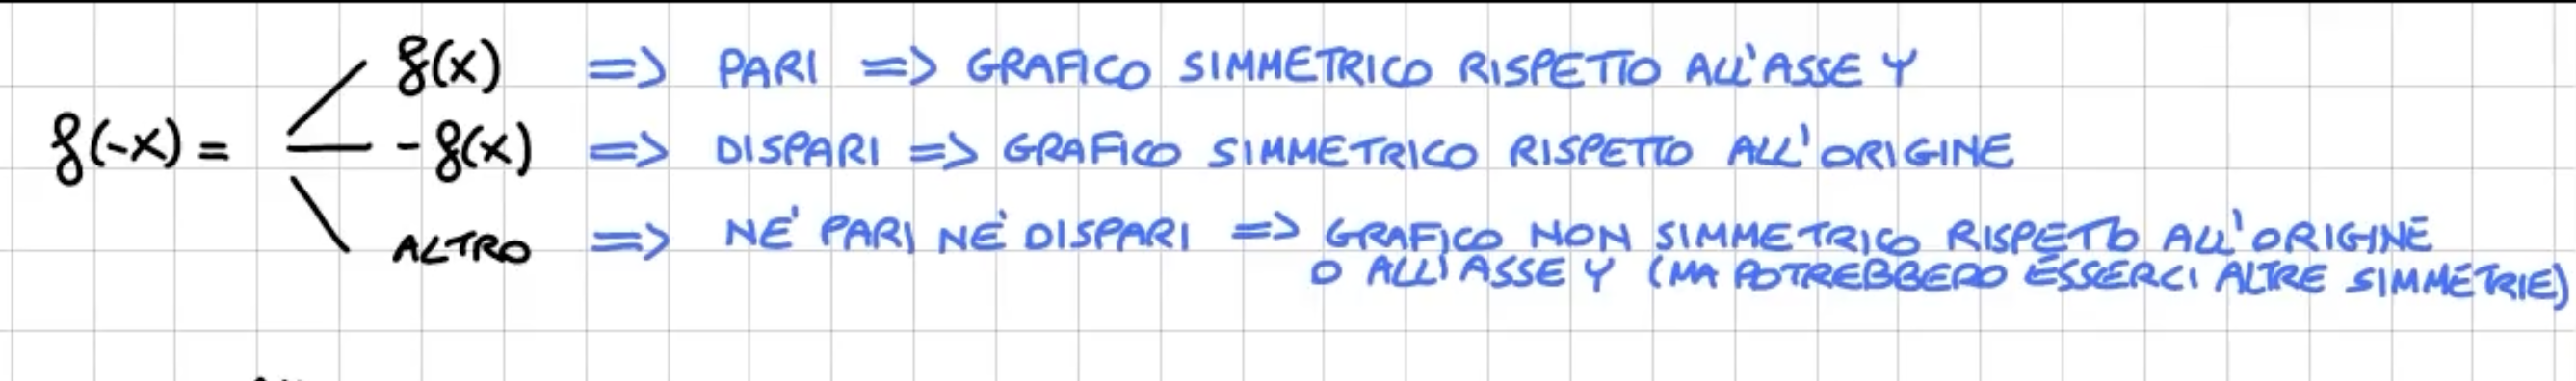 f(x) => PARI => GRAFICO SIMMETRICO RISPETTO ALL'ASSE Y
f(-x) = -f(x) => DISPARI => GRAFICO SIMMETRICO RISPETTO ALL'ORIGINE
ALTRO => NE' PARI NE' DISPARI => GRAFICO NON SIMMETRICO RISPETTO ALL'ORIGINE
O ALL'ASSE Y (MA POTREBBERO ESSERCI ALTRE SIMMETRIE)